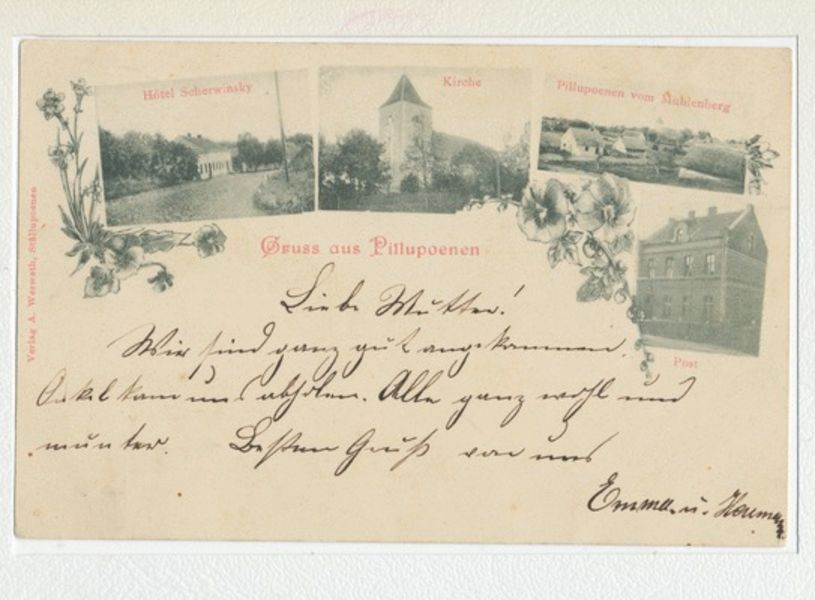 Hôtel Scherwinsky
Kirche
Pillupoenen vom Mühlenberg
Gruss aus Pillupoenen
Post
Verlag A. Werwath, Stallupoenen
Liebe Mutter!
Wir sind ganz gut angekommen.
Onkel kam uns abholen. Alle ganz wohl und
munter. Besten Gruß von uns
Emma u.